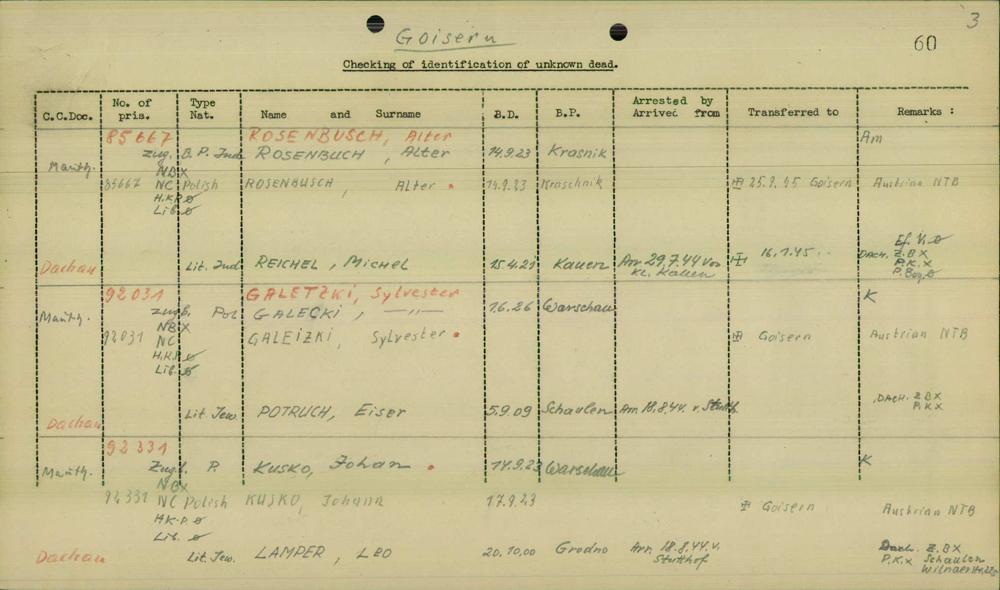 3
Goisern
60
Checking of identification of unknown dead.
C.C.Doc. No. of pris. Type Nat. Name and Surname B.D. B.P. Arrested by Arrived from Transferred to Remarks :
85667 ROSENBUSCH, Alter Am
Mauth. Zug. B. P. Jud ROSENBUCH, Alter 14.9.23 Krasnik
NBX
85667 NC Polish ROSENBUSCH, Alter 14.9.23 Kraschnik 25.2.45 Goisern Austrian NTB
H.K.P ø
Lib. ø
Dachau Lit. Jud REICHEL, Michel 15.4.21 Kauen Arr 29.7.44 von Kl. Kauen 16.1.45 DACH. Z.BX
P.K.X
92031 GALETZKI, Sylvester K
Mauth. Zugb. Pol GALECKI, —"— 1.6.26 Warschau
NBX
92031 NC GALEIZKI, Sylvester Goisern Austrian NTB
H.K.P ø
Lib. ø
Dachau Lit. Jew. POTRUCH, Eiser 5.9.09 Schaulen Arr 18.8.44. v. Stutth. DACH. Z BX
P.K.X
92331
Mauth. Zugb. P. KUSKO, Johan 17.9.23 Warschau K
NBX
92331 NC Polish KUSKO, Johann 17.9.23 Goisern Austrian NTB
H.K.P ø
Lib. ø
Dachau Lit. Jew. LAMPER, LEO 20.10.00 Grodno Arr. 18.8.44. v. Stutthof Dach. Z.BX
P.K.X Schaulen